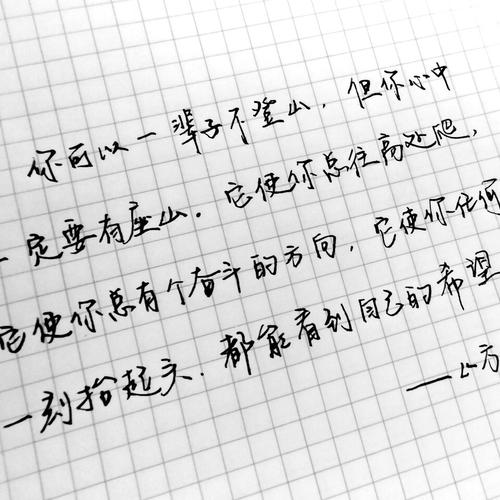 你可以一辈子不登山，但你心中
一定要有座山。它使你总往高处爬，
它使你总有个奋斗的方向，它使你任何
一刻抬起头，都能看到自己的希望